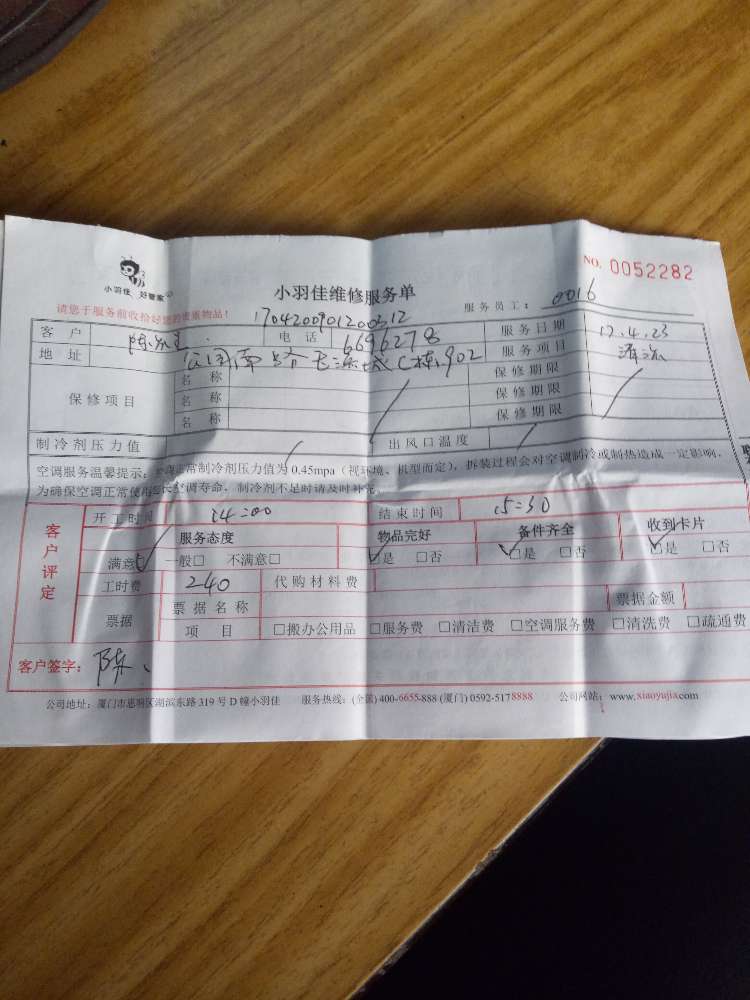 小羽佳 好管家
小羽佳维修服务单
NO. 0052282
请您于服务前收拾好您的贵重物品!
服务员工: 0016
1704200901200312
客户 陈 电话 6696278 服务日期 17.4.23
地址 902 服务项目 清洗
保修项目 名称 保修期限
名称 保修期限
名称 保修期限
制冷剂压力值 出风口温度
空调服务温馨提示: 正常制冷剂压力值为0.45mpa(视环境、机型而定),拆装过程会对空调制冷或制热造成一定影响,
为确保空调正常使用 长空调寿命,制冷剂不足时请及时补充
客户评定
开工时间 14:00 结束时间 15:30
服务态度 物品完好 备件齐全 收到卡片
满意 一般□ 不满意□ □是 □否 □是 □否 □是 □否
工时费 240 代购材料费
票据 票据名称 票据金额
项目 □搬办公用品 □服务费 □清洁费 □空调服务费 □清洗费 □疏通费
客户签字: 陈
公司地址: 厦门市思明区湖滨东路319号D幢小羽佳 服务热线: (全国)400-6655-888 (厦门)0592-5178888 公司网站: www.xiaoyujia.com